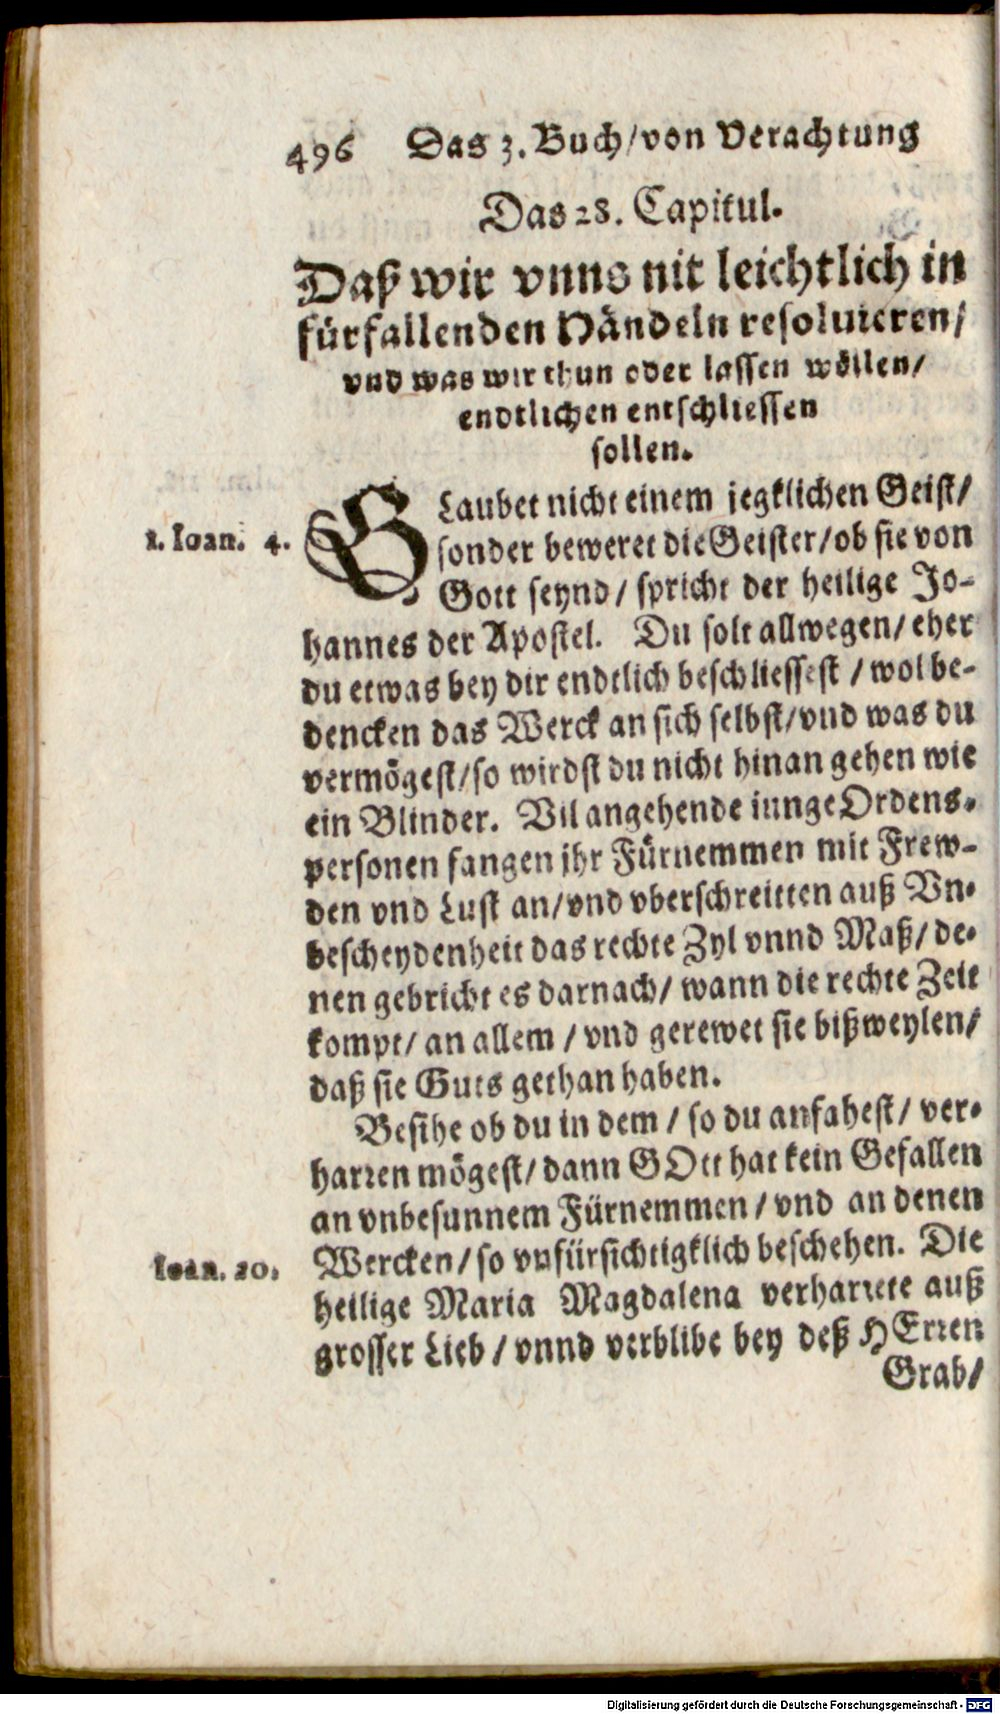 496 Das 3. Buch/von Verachtung
Das 28. Capitul.
Daß wir vnns nit leichtlich in
fürfallenden Händeln resoluieren/
vnd was wir thun oder lassen wöllen/
endtlichen entschliessen
sollen.
GLaubet nicht einem jegklichen Geist/
1. Ioan. 4.
sonder beweret die Geister/ob sie von
Gott seynd/ spricht der heilige Jo-
hannes der Apostel. Du solt allwegen/ eher
du etwas bey dir endtlich beschliessest / wol be-
dencken das Werck an sich selbst/vnd was du
vermögest/so wirdst du nicht hinan gehen wie
ein Blinder. Vil angehende junge Ordens-
personen fangen jhr Fürnemmen mit Frew-
den vnd Lust an/vnd vberschreitten auß Vn-
bescheydenheit das rechte Zyl vnnd Maß/ de-
nen gebricht es darnach/ wann die rechte Zeit
kompt/ an allem / vnd gerewet sie bißweylen/
daß sie Guts gethan haben.
Besihe ob du in dem / so du anfahest/ ver-
harren mögest/ dann GOtt hat kein Gefallen
an vnbesunnem Fürnemmen / vnd an denen
Wercken/ so vnfürsichtigklich beschehen. Die
Ioan. 20.
heilige Maria Magdalena verharrete auß
grosser Lieb / vnnd verblibe bey deß HErren
Grab/
Digitalisierung gefördert durch die Deutsche Forschungsgemeinschaft - DFG